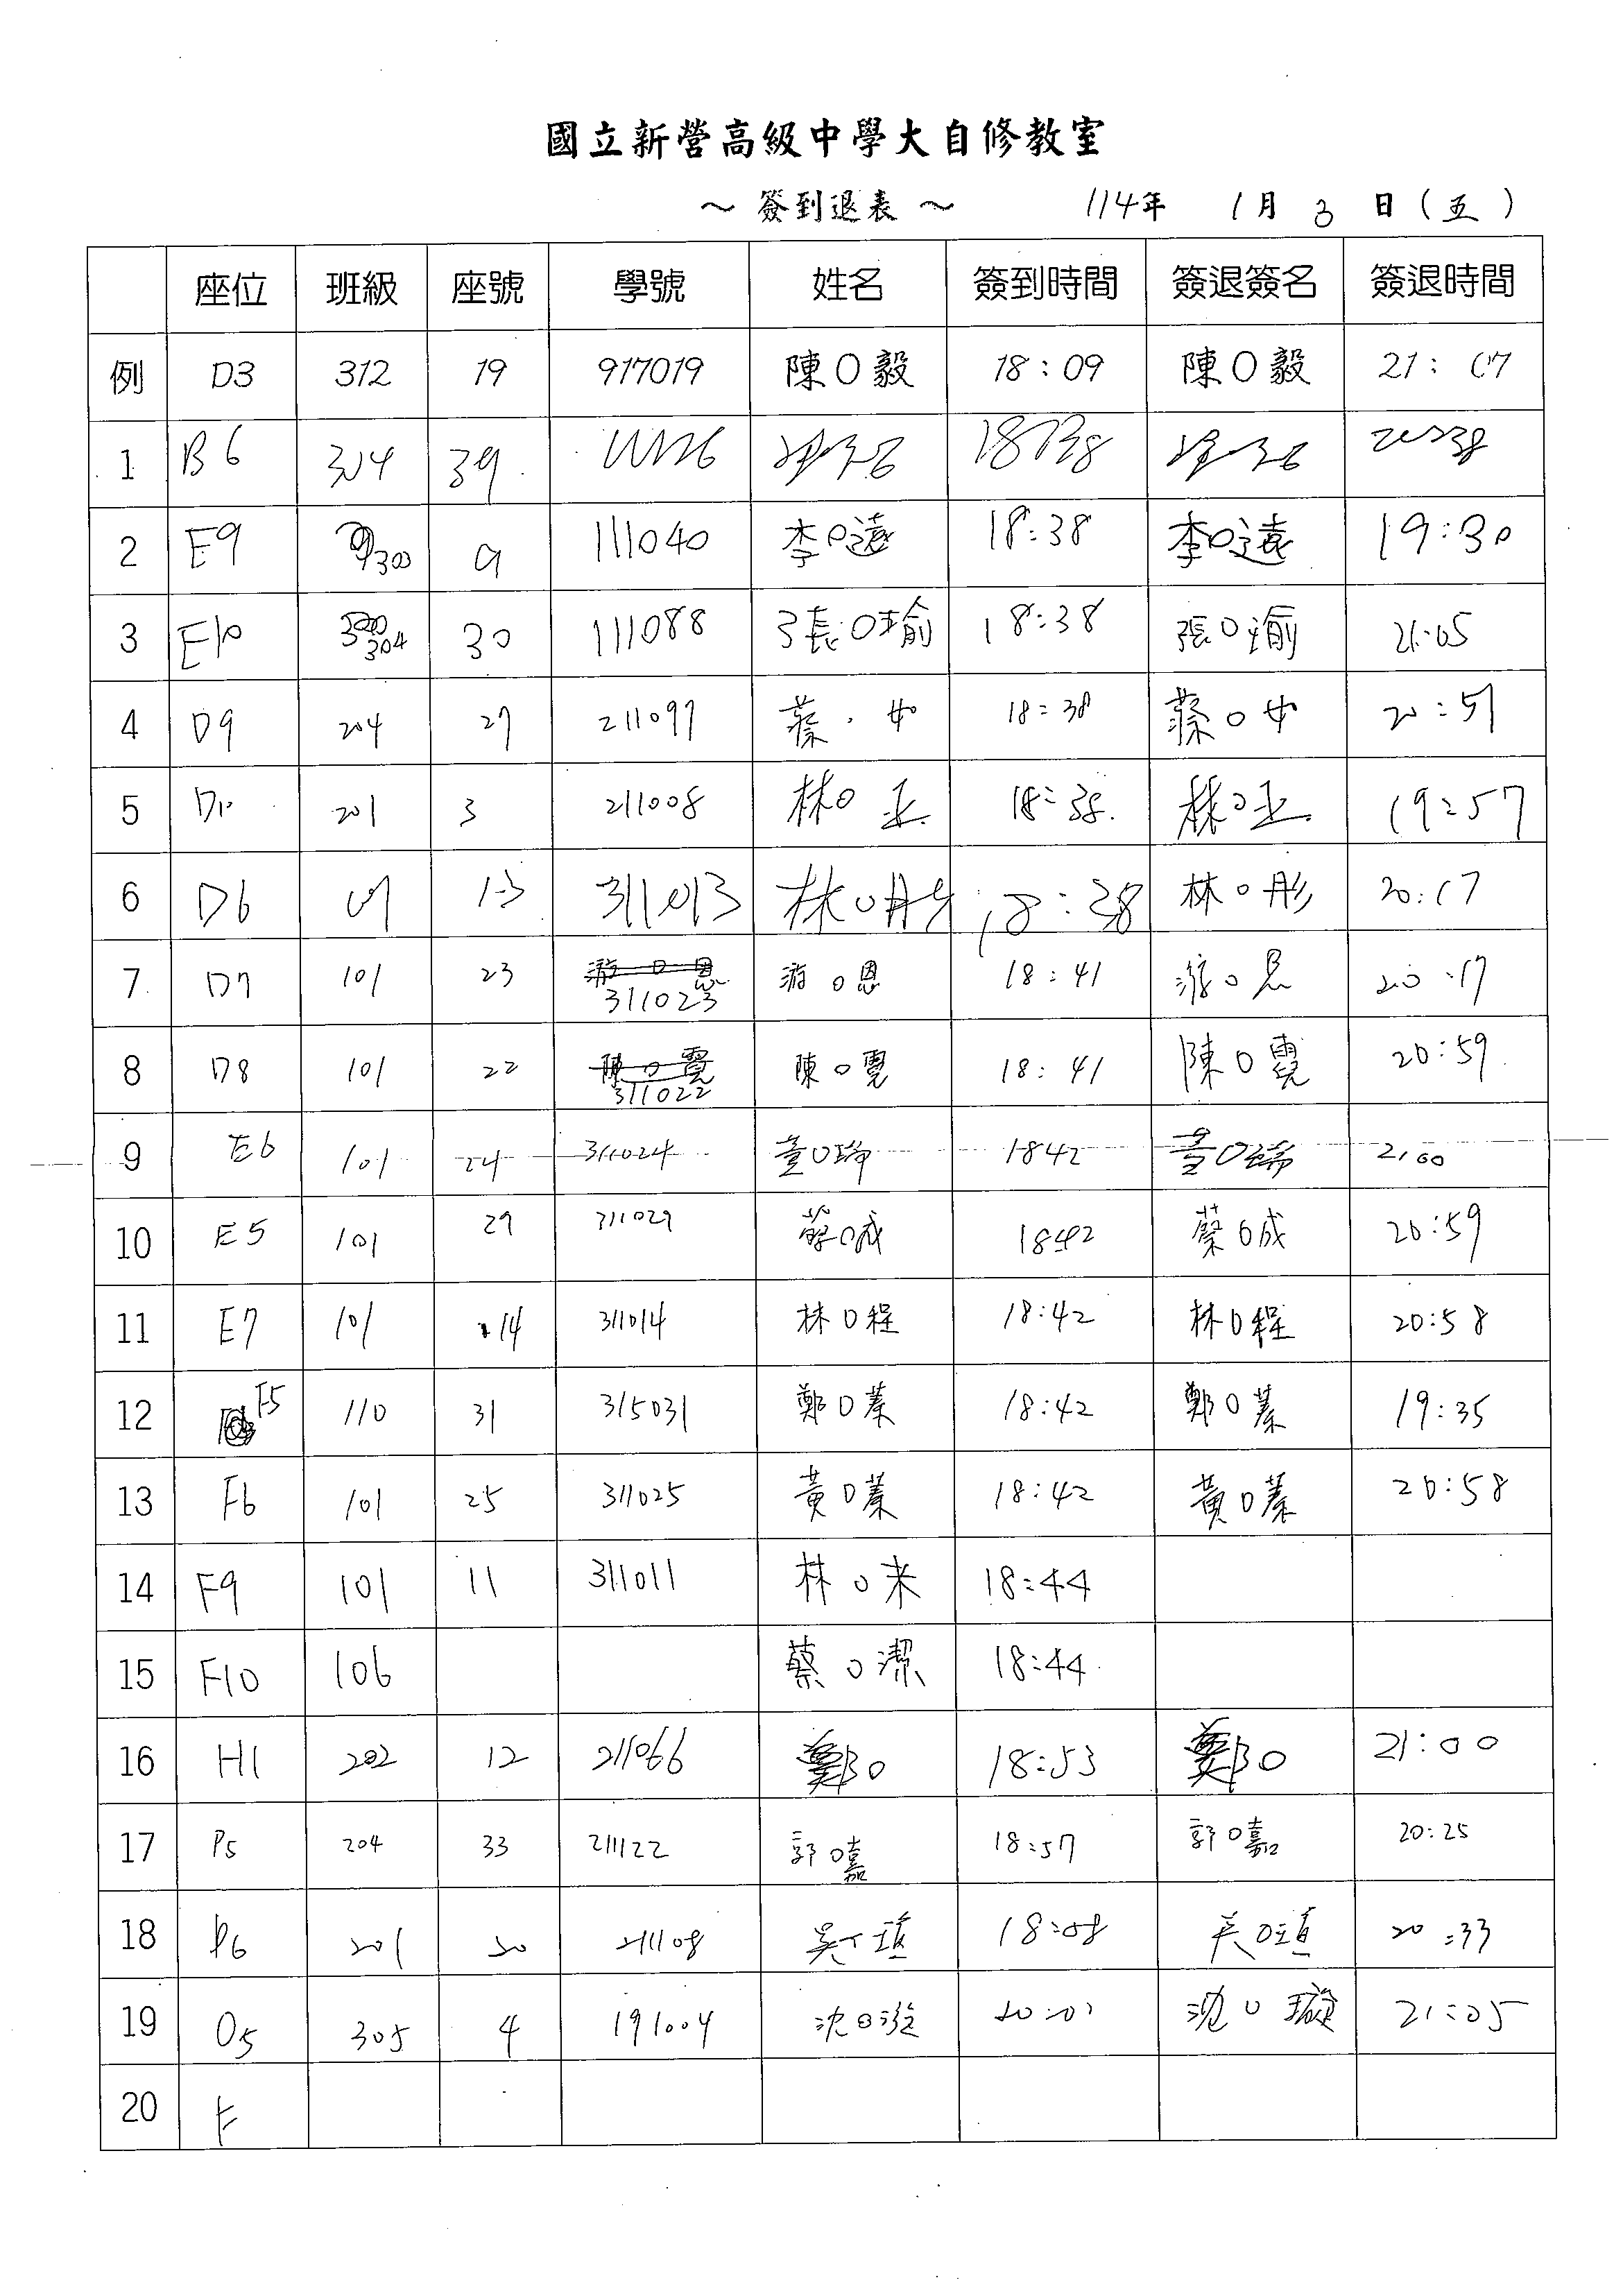 國立新營高級中學大自修教室
～ 簽到退表 ～ 114年 1月 3 日（五）
座位 班級 座號 學號 姓名 簽到時間 簽退簽名 簽退時間
例 D3 312 19 917019 陳O毅 18:09 陳O毅 21:07
1 B6 304 39
2 E9 303 9 111040 李O遠 18:38 李O遠 19:30
3 E10 304 30 111088 張O瑜 18:38 張O瑜 21:05
4 D9 204 27 211097 蔡 18:38 蔡O 20:51
5 D10 201 3 211008 林O正 18:38 林O正 19:57
6 D6 13 311013 林O彤 18:38 林O彤 20:17
7 D7 101 23 游O恩 311023 游O恩 18:41 游O恩 20:17
8 D8 101 22 陳O霓 311022 陳O霓 18:41 陳O霓 20:59
9 E6 101 24 311024 黃O瑜 1842 2100
10 E5 101 29 311029 蔡O誠 1842 蔡O誠 20:59
11 E7 101 14 311014 林O程 18:42 林O程 20:58
12 F5 110 31 315031 鄭O蓁 18:42 鄭O蓁 19:35
13 F6 101 25 311025 黃O蓁 18:42 黃O蓁 20:58
14 F9 101 11 311011 林O米 18:44
15 F10 106 蔡O潔 18:44
16 H1 202 12 211066 鄭O 18:53 鄭O 21:00
17 P5 204 33 211122 郭O嘉 18:57 郭O嘉 20:25
18 P6 201 30 211108 吳 18:08 吳O 20:33
19 O5 305 4 191004 沈O璇 20:01 沈O璇 21:05
20 E